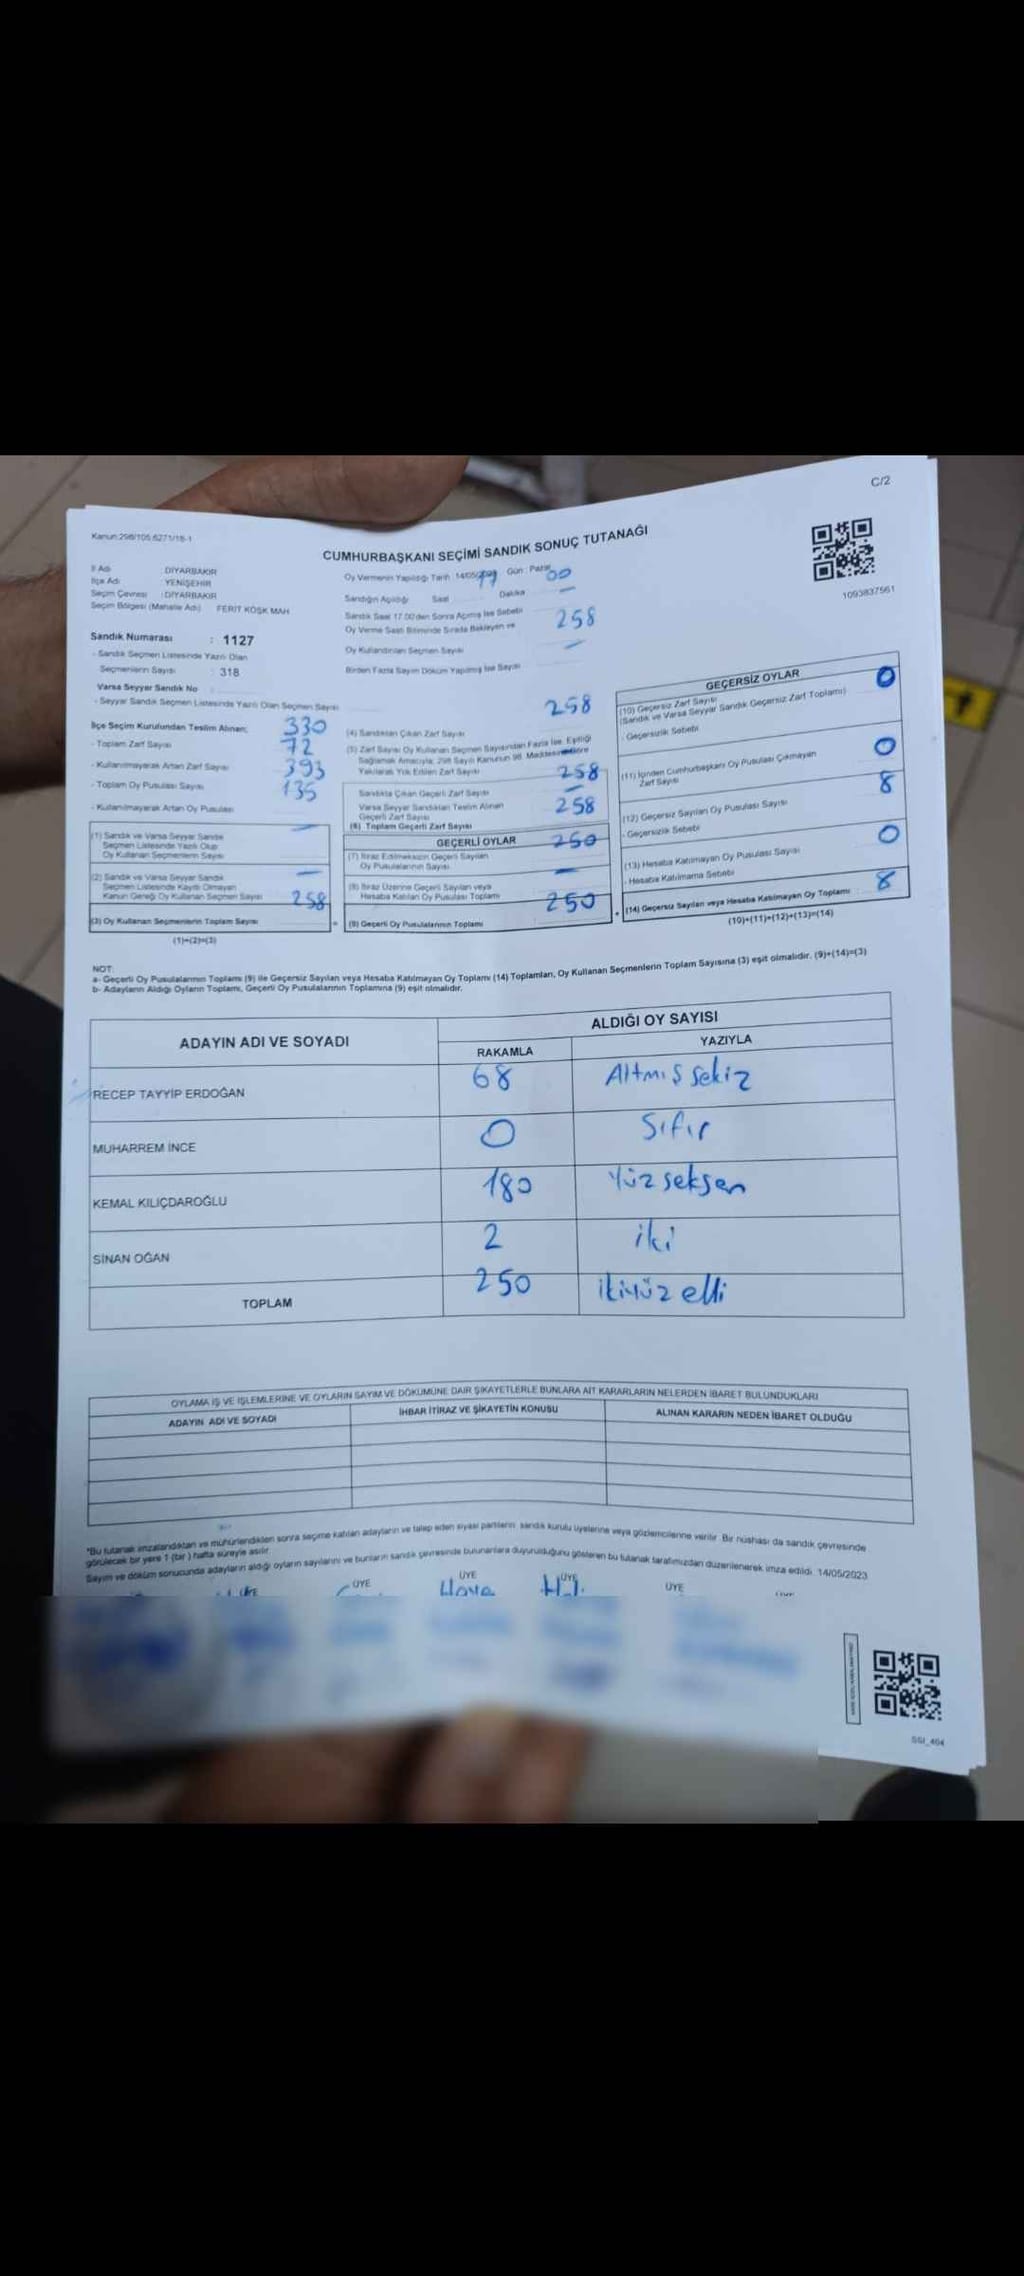 C/2
Kanun:298/105,6271/18-1
CUMHURBAŞKANI SEÇİMİ SANDIK SONUÇ TUTANAĞI
1093837561
İl Adı : DİYARBAKIR
İlçe Adı : YENİŞEHİR
Seçim Çevresi : DİYARBAKIR
Seçim Bölgesi (Mahalle Adı) FERİT KÖŞK MAH
Sandık Numarası : 1127
- Sandık Seçmen Listesinde Yazılı Olan
Seçmenlerin Sayısı : 318
Varsa Seyyar Sandık No
- Seyyar Sandık Seçmen Listesinde Yazılı Olan Seçmen Sayısı
İlçe Seçim Kurulundan Teslim Alınan; 330
- Toplam Zarf Sayısı 72
- Kullanılmayarak Artan Zarf Sayısı 393
- Toplam Oy Pusulası Sayısı 135
- Kullanılmayarak Artan Oy Pusulası
(1) Sandık ve Varsa Seyyar Sandık
Seçmen Listesinde Yazılı Olup
Oy Kullanan Seçmenlerin Sayısı
(2) Sandık ve Varsa Seyyar Sandık
Seçmen Listesinde Kayıtlı Olmayan
Kanun Gereği Oy Kullanan Seçmen Sayısı 258
(3) Oy Kullanan Seçmenlerin Toplam Sayısı
(1)+(2)=(3)
Oy Vermenin Yapıldığı Tarih 14/05/2023 Gün : Pazar
Sandığın Açıldığı Saat 17 Dakika 00
Sandık Saat 17.00'den Sonra Açılmış İse Sebebi
Oy Verme Saati Bitiminde Sırada Bekleyen ve 258
Oy Kullandırılan Seçmen Sayısı
Birden Fazla Sayım Döküm Yapılmış İse Sayısı
258
(4) Sandıktan Çıkan Zarf Sayısı
(5) Zarf Sayısı Oy Kullanan Seçmen Sayısından Fazla İse, Eşitliği
Sağlamak Amacıyla, 298 Sayılı Kanunun 98. Maddesine Göre
Yakılarak Yok Edilen Zarf Sayısı 258
Sandıkta Çıkan Geçerli Zarf Sayısı
Varsa Seyyar Sandıktan Teslim Alınan 258
Geçerli Zarf Sayısı
(6) Toplam Geçerli Zarf Sayısı
GEÇERLİ OYLAR 250
(7) İtiraz Edilmeksizin Geçerli Sayılan
Oy Pusulalarının Sayısı
(8) İtiraz Üzerine Geçerli Sayılan veya
Hesaba Katılan Oy Pusulası Toplamı 250
(9) Geçerli Oy Pusulalarının Toplamı
GEÇERSİZ OYLAR 0
(10) Geçersiz Zarf Sayısı
(Sandık ve Varsa Seyyar Sandık Geçersiz Zarf Toplamı)
- Geçersizlik Sebebi
0
(11) İçinden Cumhurbaşkanı Oy Pusulası Çıkmayan
Zarf Sayısı 8
(12) Geçersiz Sayılan Oy Pusulası Sayısı
- Geçersizlik Sebebi 0
(13) Hesaba Katılmayan Oy Pusulası Sayısı
- Hesaba Katılmama Sebebi 8
(14) Geçersiz Sayılan veya Hesaba Katılmayan Oy Toplamı
(10)+(11)+(12)+(13)=(14)
NOT:
a- Geçerli Oy Pusulalarının Toplamı (9) ile Geçersiz Sayılan veya Hesaba Katılmayan Oy Toplamı (14) Toplamları, Oy Kullanan Seçmenlerin Toplam Sayısına (3) eşit olmalıdır. (9)+(14)=(3)
b- Adayların Aldığı Oyların Toplamı, Geçerli Oy Pusulalarının Toplamına (9) eşit olmalıdır.
ADAYIN ADI VE SOYADI ALDIĞI OY SAYISI
RAKAMLA YAZIYLA
RECEP TAYYİP ERDOĞAN 68 Altmış sekiz
MUHARREM İNCE 0 Sıfır
KEMAL KILIÇDAROĞLU 180 Yüz seksen
SİNAN OĞAN 2 iki
TOPLAM 250 ikiyüz elli
OYLAMA İŞ VE İŞLEMLERİNE VE OYLARIN SAYIM VE DÖKÜMÜNE DAİR ŞİKAYETLERLE BUNLARA AİT KARARLARIN NELERDEN İBARET BULUNDUKLARI
ADAYIN ADI VE SOYADI İHBAR İTİRAZ VE ŞİKAYETİN KONUSU ALINAN KARARIN NEDEN İBARET OLDUĞU
*Bu tutanak imzalandıktan ve mühürlendikten sonra seçime katılan adayların ve talep eden siyasi partilerin sandık kurulu üyelerine veya gözlemcilerine verilir. Bir nüshası da sandık çevresinde
görülecek bir yere 1 (bir) hafta süreyle asılır.
Sayım ve döküm sonucunda adayların aldığı oyların sayılarını ve bunların sandık çevresinde bulunanlara duyurulduğunu gösteren bu tutanak tarafımızdan düzenlenerek imza edildi. 14/05/2023
ÜYE ÜYE ÜYE ÜYE ÜYE
SGI_464